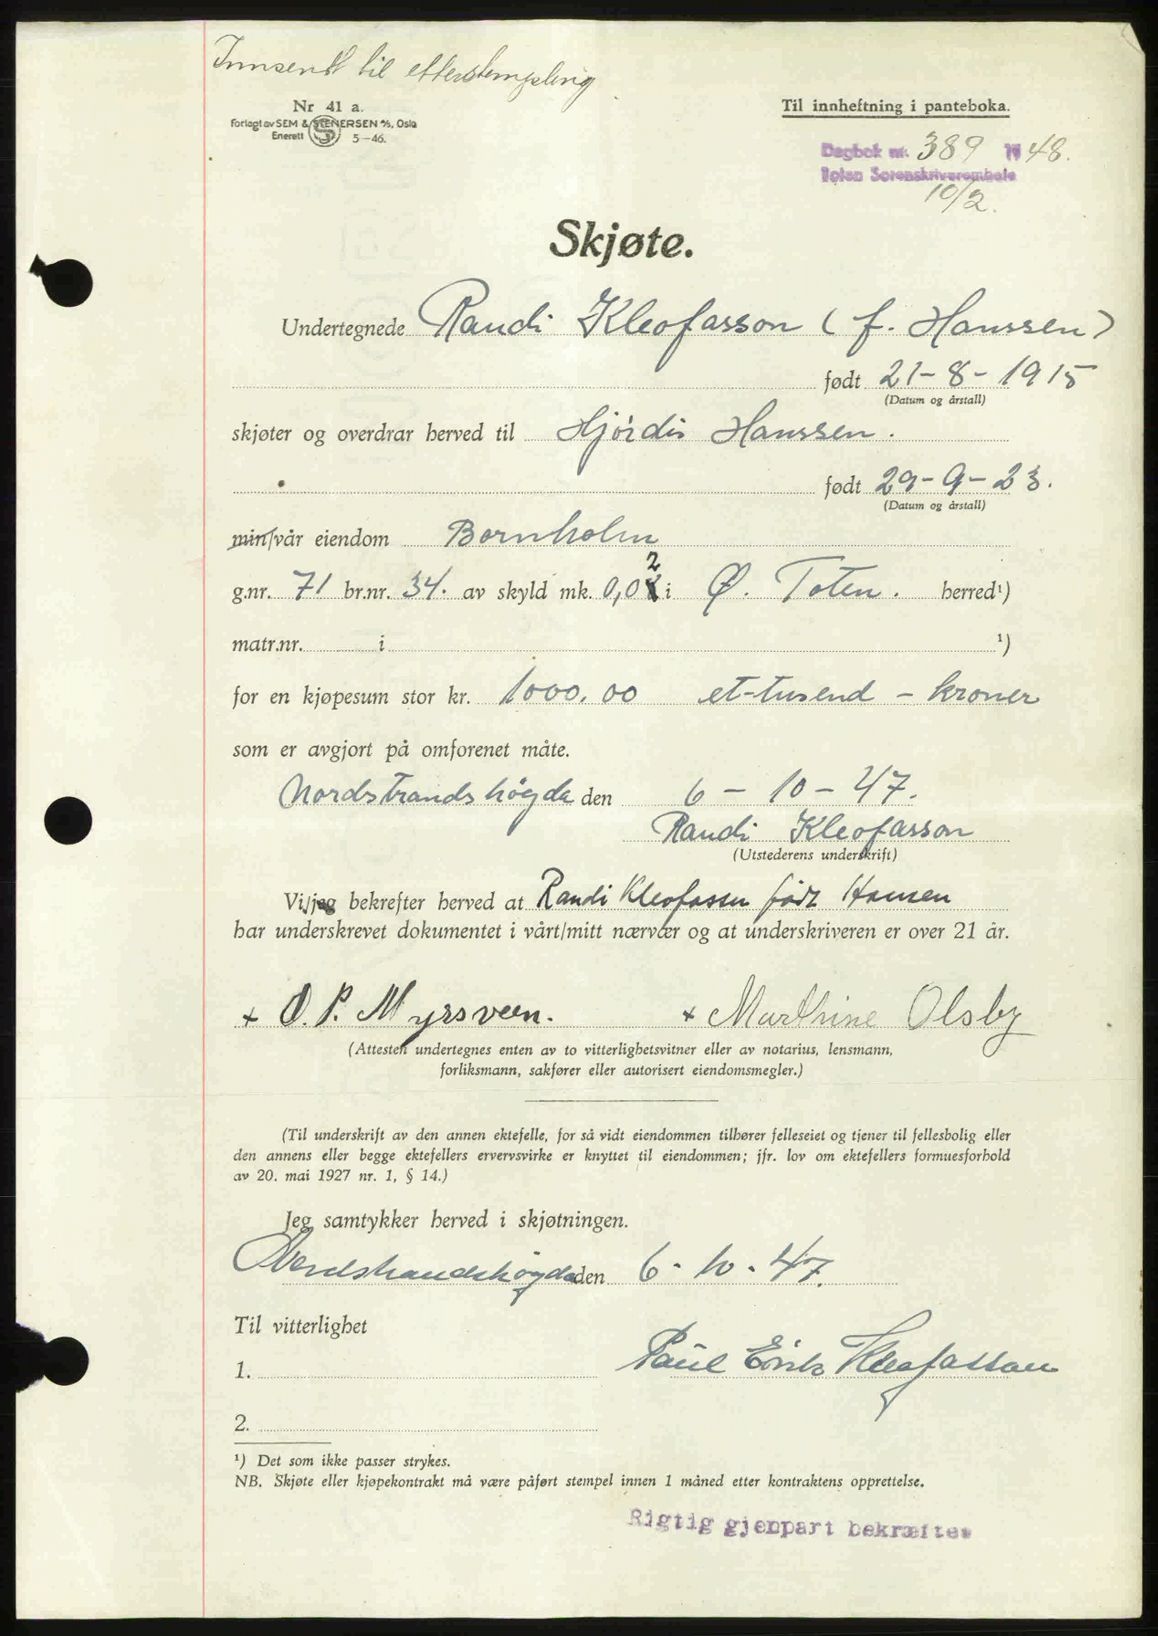 Innsendt til etterstempling
Nr 41 a.
Forlagt av SEM & STENERSEN A/S, Oslo
Enerett S 5—46.
Til innheftning i panteboka.
Dagbok nr. 389 1948.
Toten Sorenskriverembete
10/2.
Skjøte.
Undertegnede Randi Kleofasson (f. Hanssen)
født 21-8-1915
(Datum og årstall)
skjøter og overdrar herved til Hjørdis Hanssen.
født 29-9-23.
(Datum og årstall)
min/vår eiendom Bornholm
g.nr. 71 br.nr. 34. av skyld mk. 0,02 i Ø. Toten. herred¹)
matr.nr. i ¹)
for en kjøpesum stor kr. 1000.00 et-tusend - kroner
som er avgjort på omforenet måte.
Nordstrandshögda den 6 - 10 - 47.
Randi Kleofasson
(Utstederens underskrift)
Vi/jeg bekrefter herved at Randi Kleofassen født Hansen
har underskrevet dokumentet i vårt/mitt nærvær og at underskriveren er over 21 år.
+ O. P. Myrsveen. + Marthine Olsby
(Attesten undertegnes enten av to vitterlighetsvitner eller av notarius, lensmann,
forliksmann, sakfører eller autorisert eiendomsmegler.)
(Til underskrift av den annen ektefelle, for så vidt eiendommen tilhører felleseiet og tjener til fellesbolig eller
den annens eller begge ektefellers ervervsvirke er knyttet til eiendommen; jfr. lov om ektefellers formuesforhold
av 20. mai 1927 nr. 1, § 14.)
Jeg samtykker herved i skjøtningen.
Nordstrandshögda den 6 - 10 - 47.
Til vitterlighet
Paul Erik Kleofasson
1.
2.
¹) Det som ikke passer strykes.
NB. Skjøte eller kjøpekontrakt må være påført stempel innen 1 måned etter kontraktens opprettelse.
Rigtig gjenpart bekræftes